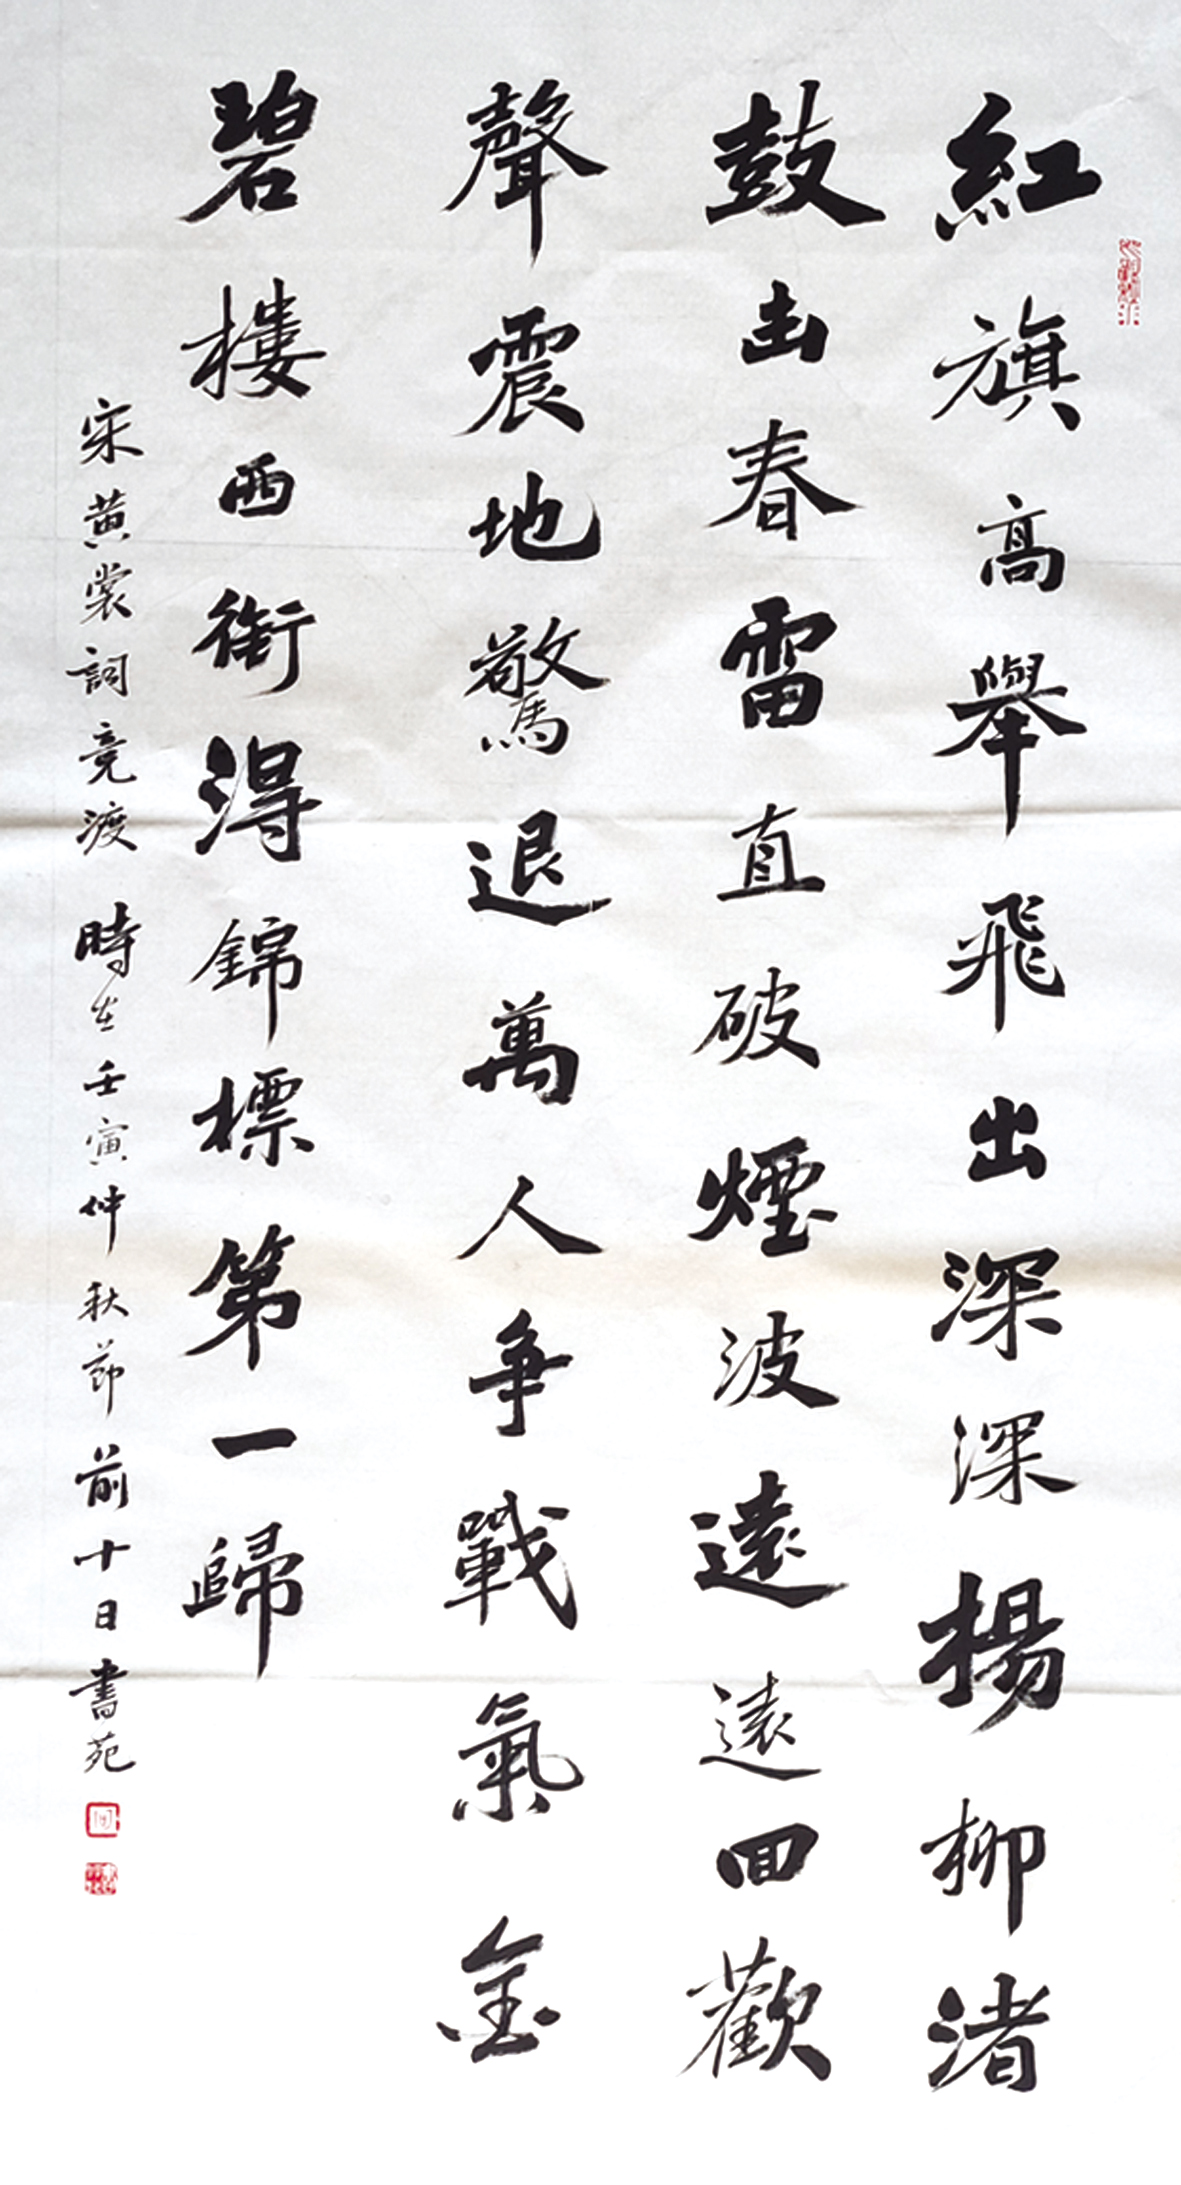 紅旗高舉飛出深深揚柳渚
鼓击春雷直破煙波遠遠回歡
聲震地驚退萬人争戰氣金
碧樓西銜得錦標第一歸
宋黄裳詞竞渡時在壬寅仲秋節前十日書苑